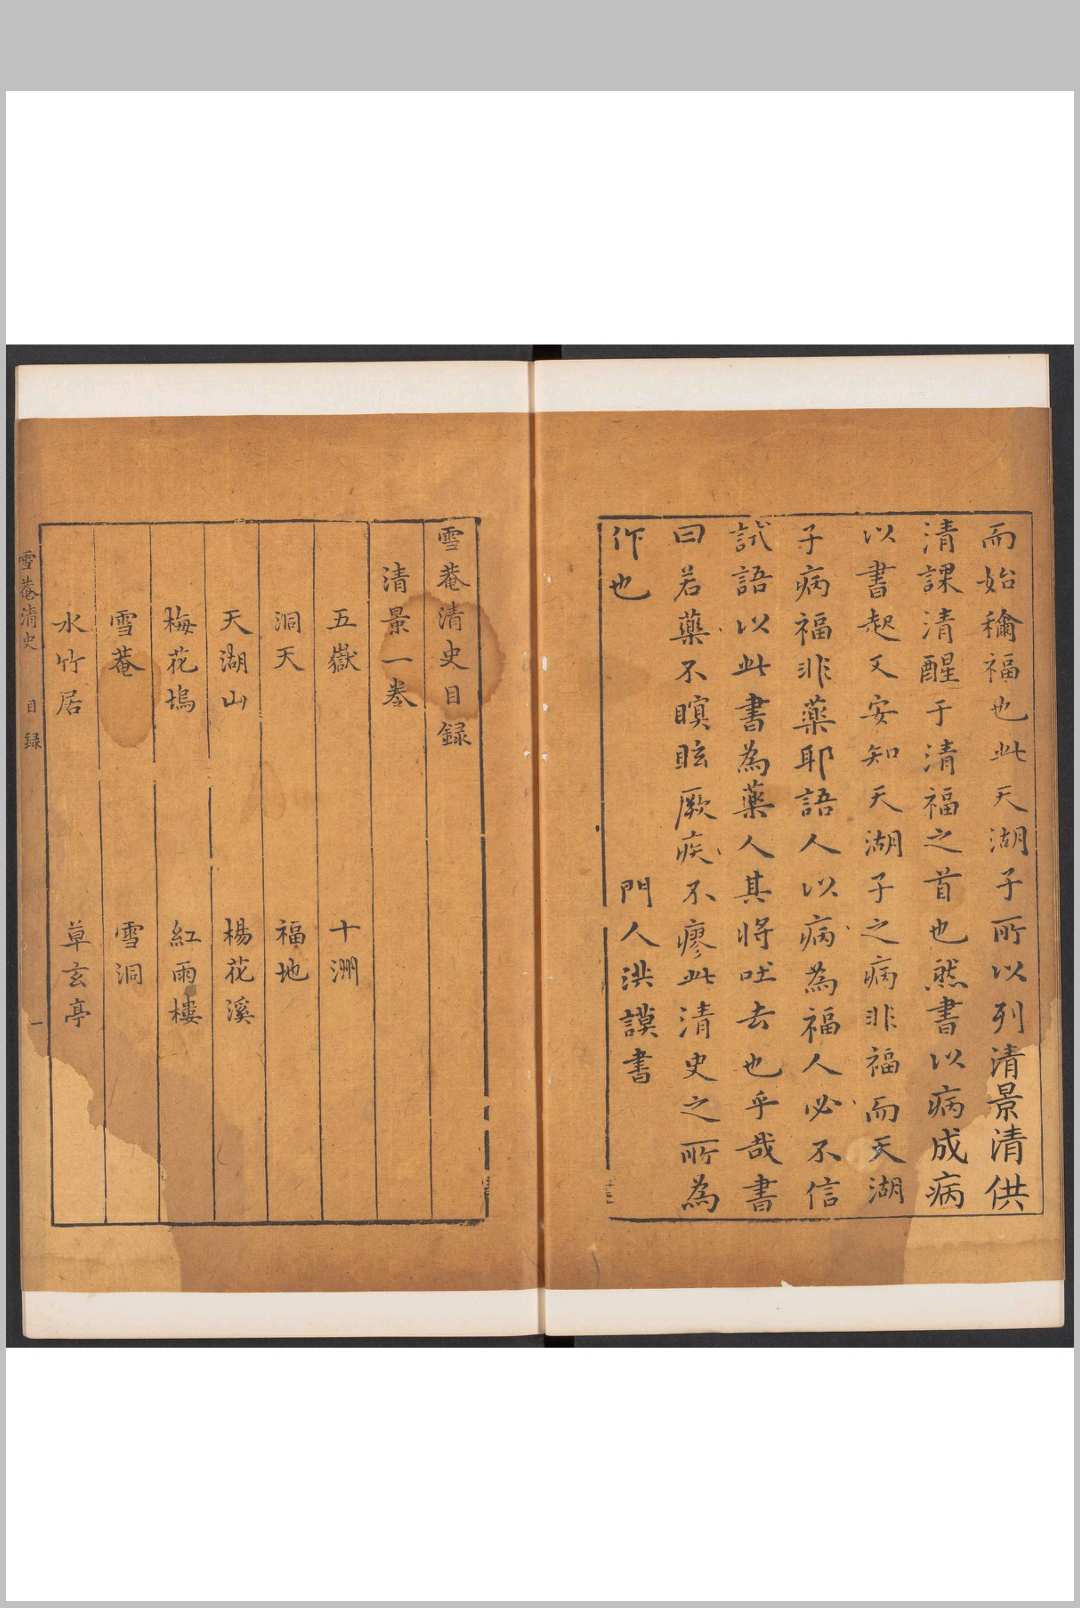 而始稱福也此天湖子所以列清景清供
清課清醒于清福之首也然書以病成病
以書起又安知天湖子之病非福而天湖
子病福非藥耶語人以病為福人必不信
試語以此書為藥人其將吐去也乎哉書
曰若藥不瞑眩厥疾不瘳此清史之所為
作也
門人洪謨書
雪菴清史目録
清景一卷
五嶽 十洲
洞天 福地
天湖山 楊花溪
梅花塢 紅雨樓
雪菴 雪洞
水竹居 草玄亭
雪菴清史 目録 一